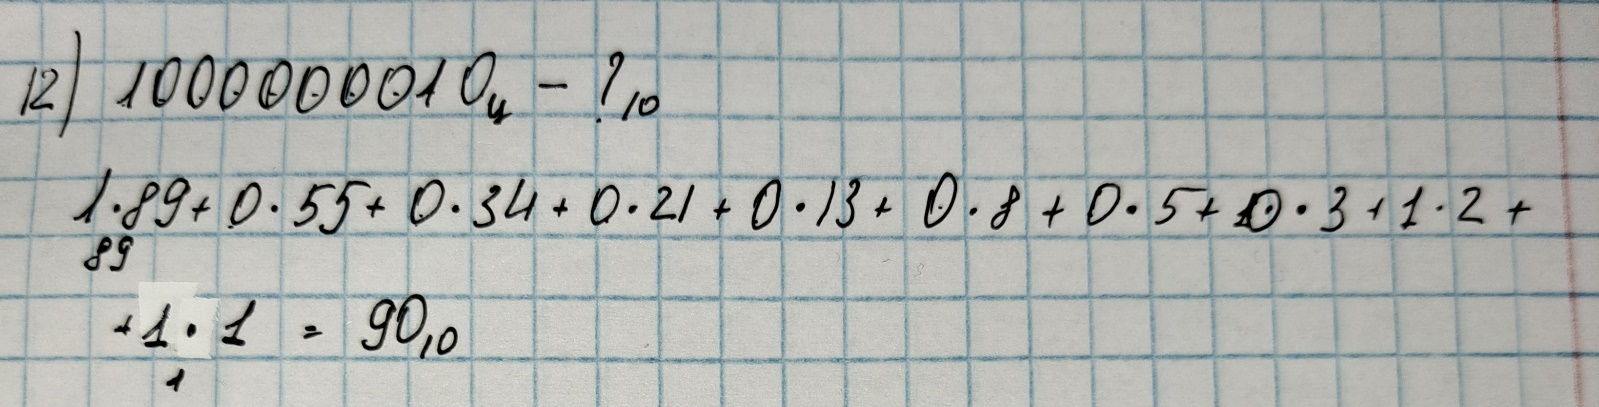 12) 1000000010ц – ?₁₀
1·89+0·55+0·34+0·21+0·13+0·8+0·5+0·3+1·2+
89
+1·1 = 90₁₀
1